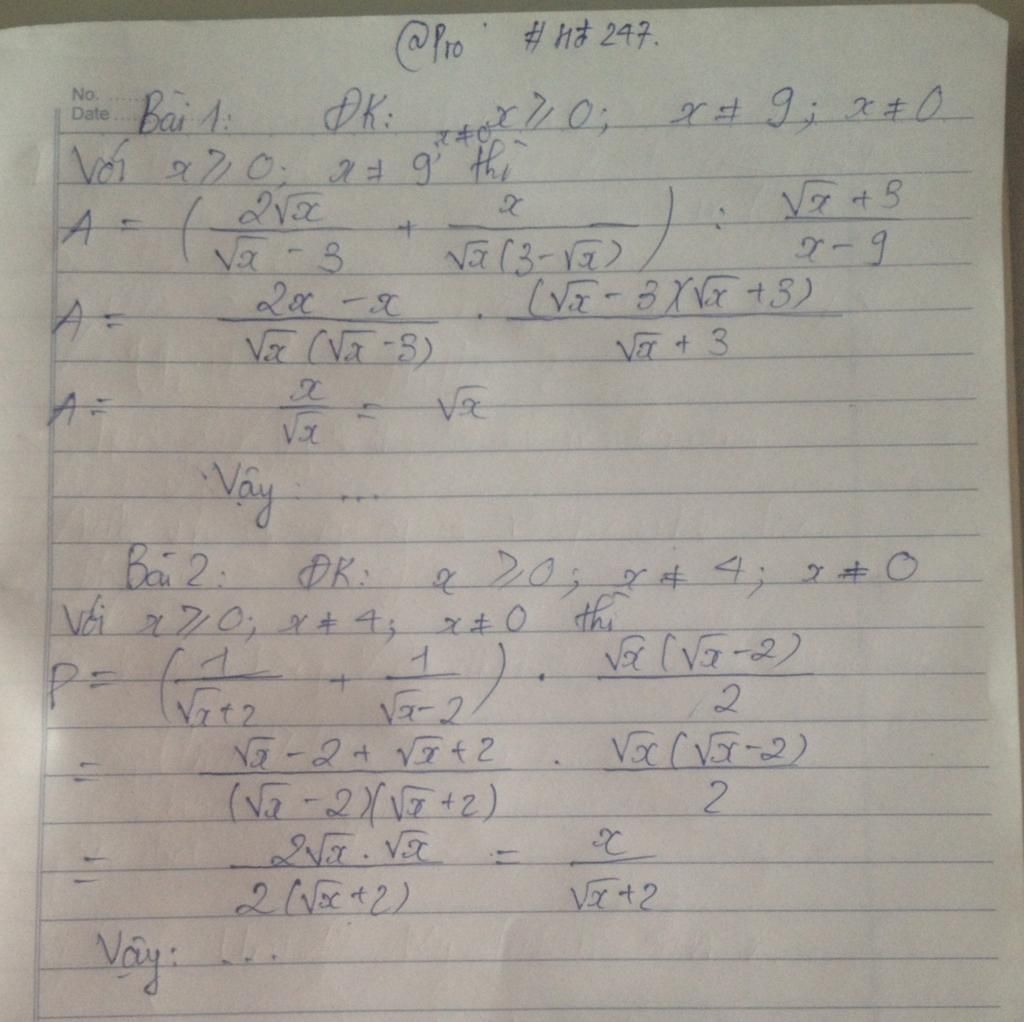 @Pro # HF 247.
No. ......
Date ....
Bài 1: ĐK: x ≥ 0; x ≠ 9; x ≠ 0
Với x ≥ 0; x ≠ 9; x ≠ 0 thì
A = ( 2√x / (√x - 3) + x / (√x(3-√x)) ) : (√x + 3) / (x - 9)
A = (2x - x) / (√x(√x-3)) . (√x - 3)(√x + 3) / (√x + 3)
A = x / √x = √x
Vậy: ...
Bài 2: ĐK: x ≥ 0; x ≠ 4; x ≠ 0
Với x ≥ 0; x ≠ 4; x ≠ 0 thì
P = ( 1 / (√x+2) + 1 / (√x-2) ) . √x(√x-2) / 2
= (√x - 2 + √x + 2) / ((√x - 2)(√x+2)) . √x(√x-2) / 2
= 2√x . √x / (2(√x+2)) = x / (√x+2)
Vậy: ...